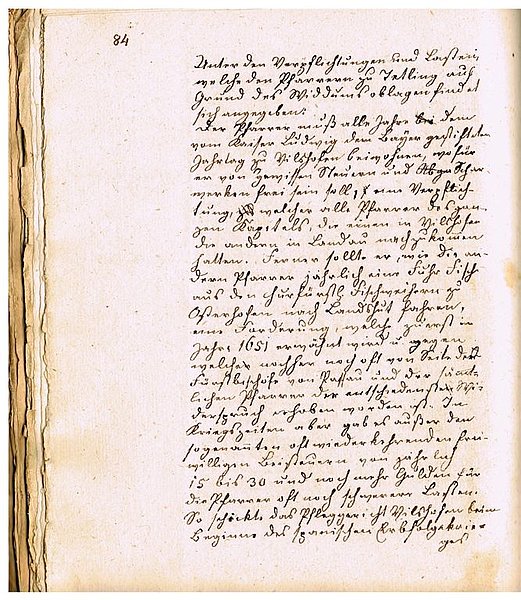 84
Unter den Verpflichtungen und Lasten,
welche den Pfarrern zu Tetling auf
Grund des Widdums oblagen findet
sich angegeben:
Der Pfarrer muß alle Jahre bei dem
vom Kaiser Ludwig dem Bayer gestifteten
Jahrtag zu Vilshofen beiwohnen, wofür
er von gewissen Steuern und Schar-
werken frei sein soll, eine Verpflich-
tung, welcher alle Pfarrer des gan-
zen Kapitels, die einen in Vilshofen
die andern in Landau nachzukommen
hatten. Ferner sollte er, wie die an-
dern Pfarrer jährlich eine Fuhr Fisch
aus den churfürstl. Fischweihern zu
Osterhofen nach Landshut fahren,
eine Forderung, welche zuerst im
Jahre 1651 erwähnt wird u. gegen
welche nachher noch oft von Seite der
Fürstbischöfe von Passau und der sämt-
lichen Pfarrer der entschiedenste Wi-
derspruch erhoben worden ist. In
Kriegszeiten aber gab es außer den
sogenannten oft wiederkehrenden frei-
willigen Beisteuern von jährlich
15 bis 30 und noch mehr Gulden für
die Pfarrer oft noch schwerere Lasten.
So schickte das Pfleggericht Vilshofen beim
Beginne des spanischen Erbfolgekrie-
ges